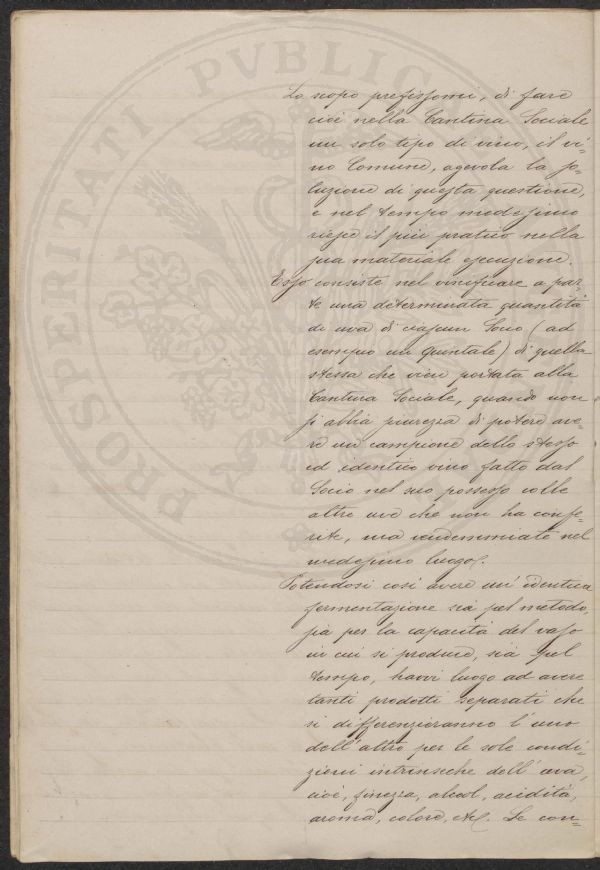 Lo scopo prefissomi, di fare
cioè nella Cantina Sociale
un solo tipo di vino, il vi=
no Comune, agevola la so=
luzione di questa questione,
e nel tempo medesimo
riesce il più pratico nella
sua materiale esecuzione.
Esso consiste nel vinificare a par=
te una determinata quantità
di uva di ciascun Socio (ad
esempio un quintale) di quella
stessa che vien portata alla
Cantina Sociale, quando non
si abbia sicurezza di potere ave=
re un campione dello stesso
ed identico vino fatto dal
Socio nel suo possesso colle
altre uve che non ha confe=
rite, ma vendemmiate nel
medesimo luogo.
Potendosi così avere un' identica
fermentazione sia pel metodo,
sia per la capacità del vaso
in cui si produce, sia pel
tempo, havvi luogo ad avere
tanti prodotti separati che
si differenzieranno l'uno
dell'altro per le sole condi=
zioni intrinseche dell'uva,
cioè, finezza, alcool, acidità,
aroma, colore, etc. Le con=
PROSPERITATI PVBLIC